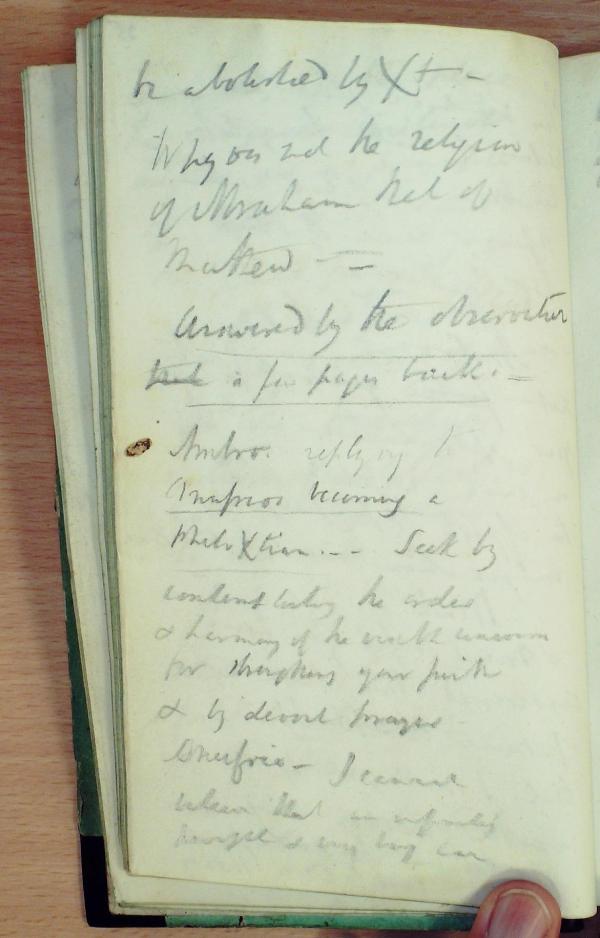 be abolished by Xt -
Why was not the religion
of Abraham that of
Matthew —
Answered by the observation
that a few pages back. =
Ambro. replying to
Onufrios becoming a
Philo Xtian. -- Seek by
contemplating the order
& harmony of the
for strengthening your faith
& by devout prayer
Onufrio - I cannot
believe that an infinitely
powerful & can